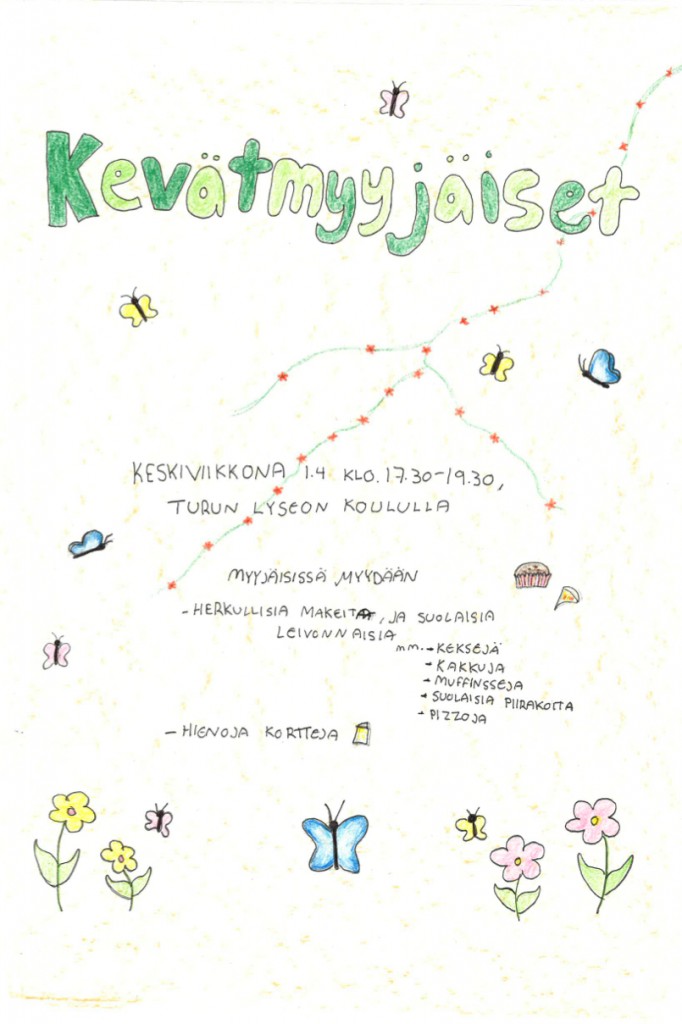 Kevätmyyjäiset
KESKIVIIKKONA 1.4 KLO.17.30-19.30,
TURUN LYSEON KOULULLA
MYYJÄISISSÄ MYYDÄÄN
- HERKULLISIA MAKEITA, JA SUOLAISIA
LEIVONNAISIA
mm. - KEKSEJÄ
- KAKKUJA
- MUFFINSSEJA
- SUOLAISIA PIIRAKOITA
- PIZZOJA
- HIENOJA KORTTEJA